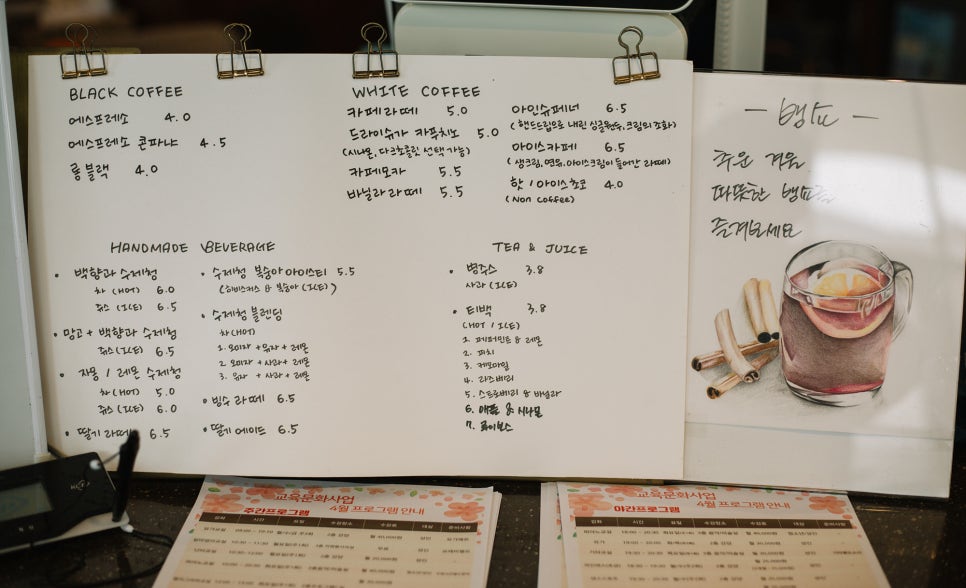 BLACK COFFEE
에스프레소 4.0
에스프레소 콘파냐 4.5
롱블랙 4.0
WHITE COFFEE
카페라떼 5.0
드라이슈가 카푸치노 5.0
(시나몬, 다크초콜릿 선택 가능)
카페모카 5.5
바닐라라떼 5.5
아인슈페너 6.5
(핸드드립으로 내린 싱글원두, 크림의 조화)
아이스카페 6.5
(생크림, 연유, 아이스크림이 들어간 라떼)
핫 / 아이스초코 4.0
(Non Coffee)
HANDMADE BEVERAGE
• 백향과 수제청
차 (HOT) 6.0
쥬스 (ICE) 6.5
• 망고 + 백향과 수제청
쥬스 (ICE) 6.5
• 자몽 / 레몬 수제청
차 (HOT) 5.0
쥬스 (ICE) 6.0
• 딸기 라떼 6.5
• 수제청 복숭아 아이스티 5.5
(히비스커스 & 복숭아 (ICE))
• 수제청 블렌딩
차 (HOT)
1. 오미자 + 유자 + 레몬
2. 오미자 + 사과 + 레몬
3. 유자 + 사과 + 레몬
• 빙수 라떼 6.5
• 딸기 에이드 6.5
TEA & JUICE
• 병주스 3.8
사과 (ICE)
• 티백 3.8
(HOT / ICE)
1. 페퍼민트 & 레몬
2. 피치
3. 캐모마일
4. 라즈베리
5. 스트로베리 & 바닐라
6. 애플 & 시나몬
7. 루이보스
– 뱅쇼 –
추운 겨울
따뜻한 뱅쇼를
즐겨보세요
교육문화사업
주간프로그램 4월 프로그램 안내
강좌 시간 요일 수강장소 수강료 대상 준비사항
교육문화사업
야간프로그램 4월 프로그램 안내
강좌 시간 요일 수강장소 수강료 대상 준비사항